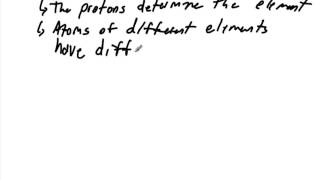 ↳ The protons determine the element
↳ Atoms of different elements
have diff